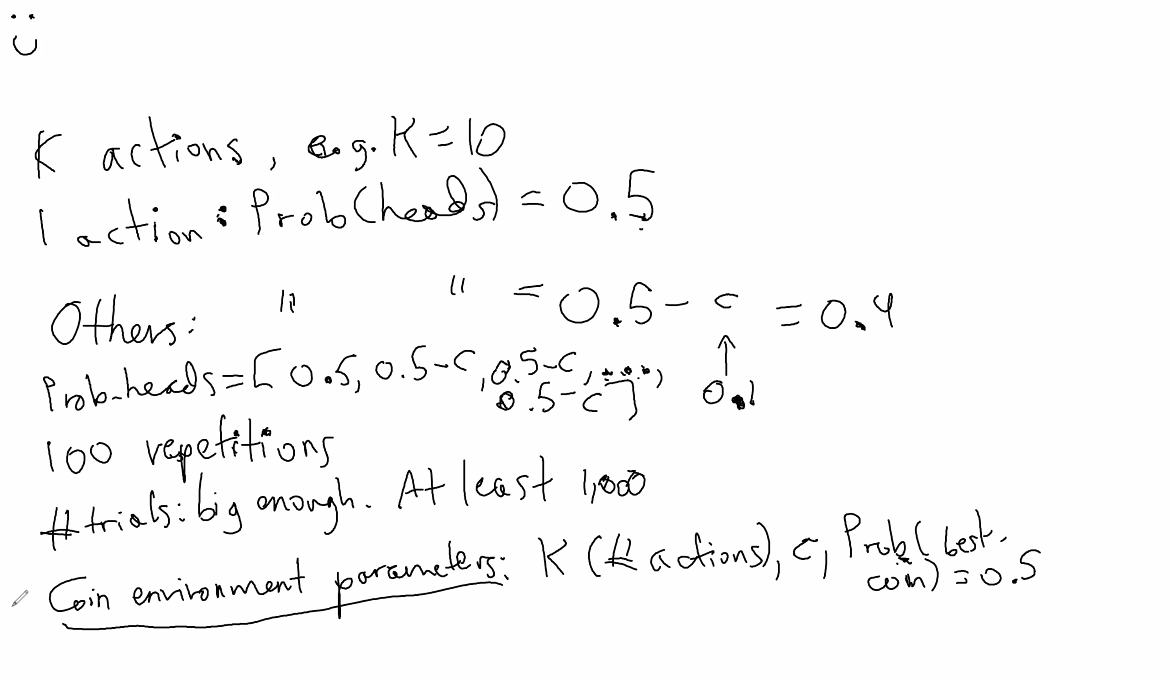 K actions, e.g. K=10
1 action: Prob(heads) = 0.5
Others: " " = 0.5 - c = 0.4
0.1
Prob-heads=[0.5, 0.5-c, 0.5-c, ....,
0.5-c]
100 repetitions
#trials: big enough. At least 1,000
Coin environment parameters: K (# actions), c, Prob(best
coin) = 0.5